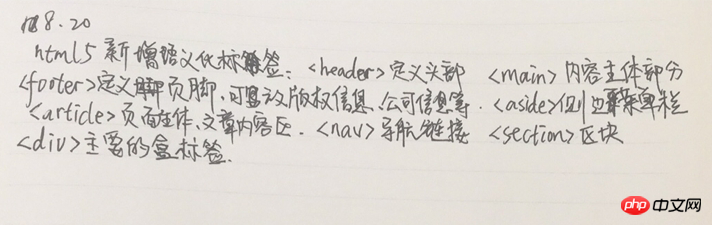 8.20
html5 新增语义化标签: <header>定义头部 <main>内容主体部分
<footer>定义页脚,可放版权信息、公司信息等. <aside>侧边菜单栏
<article>页面主体、文章内容区. <nav>导航链接 <section>区块
<div>主要的盒标签.
php 中文网